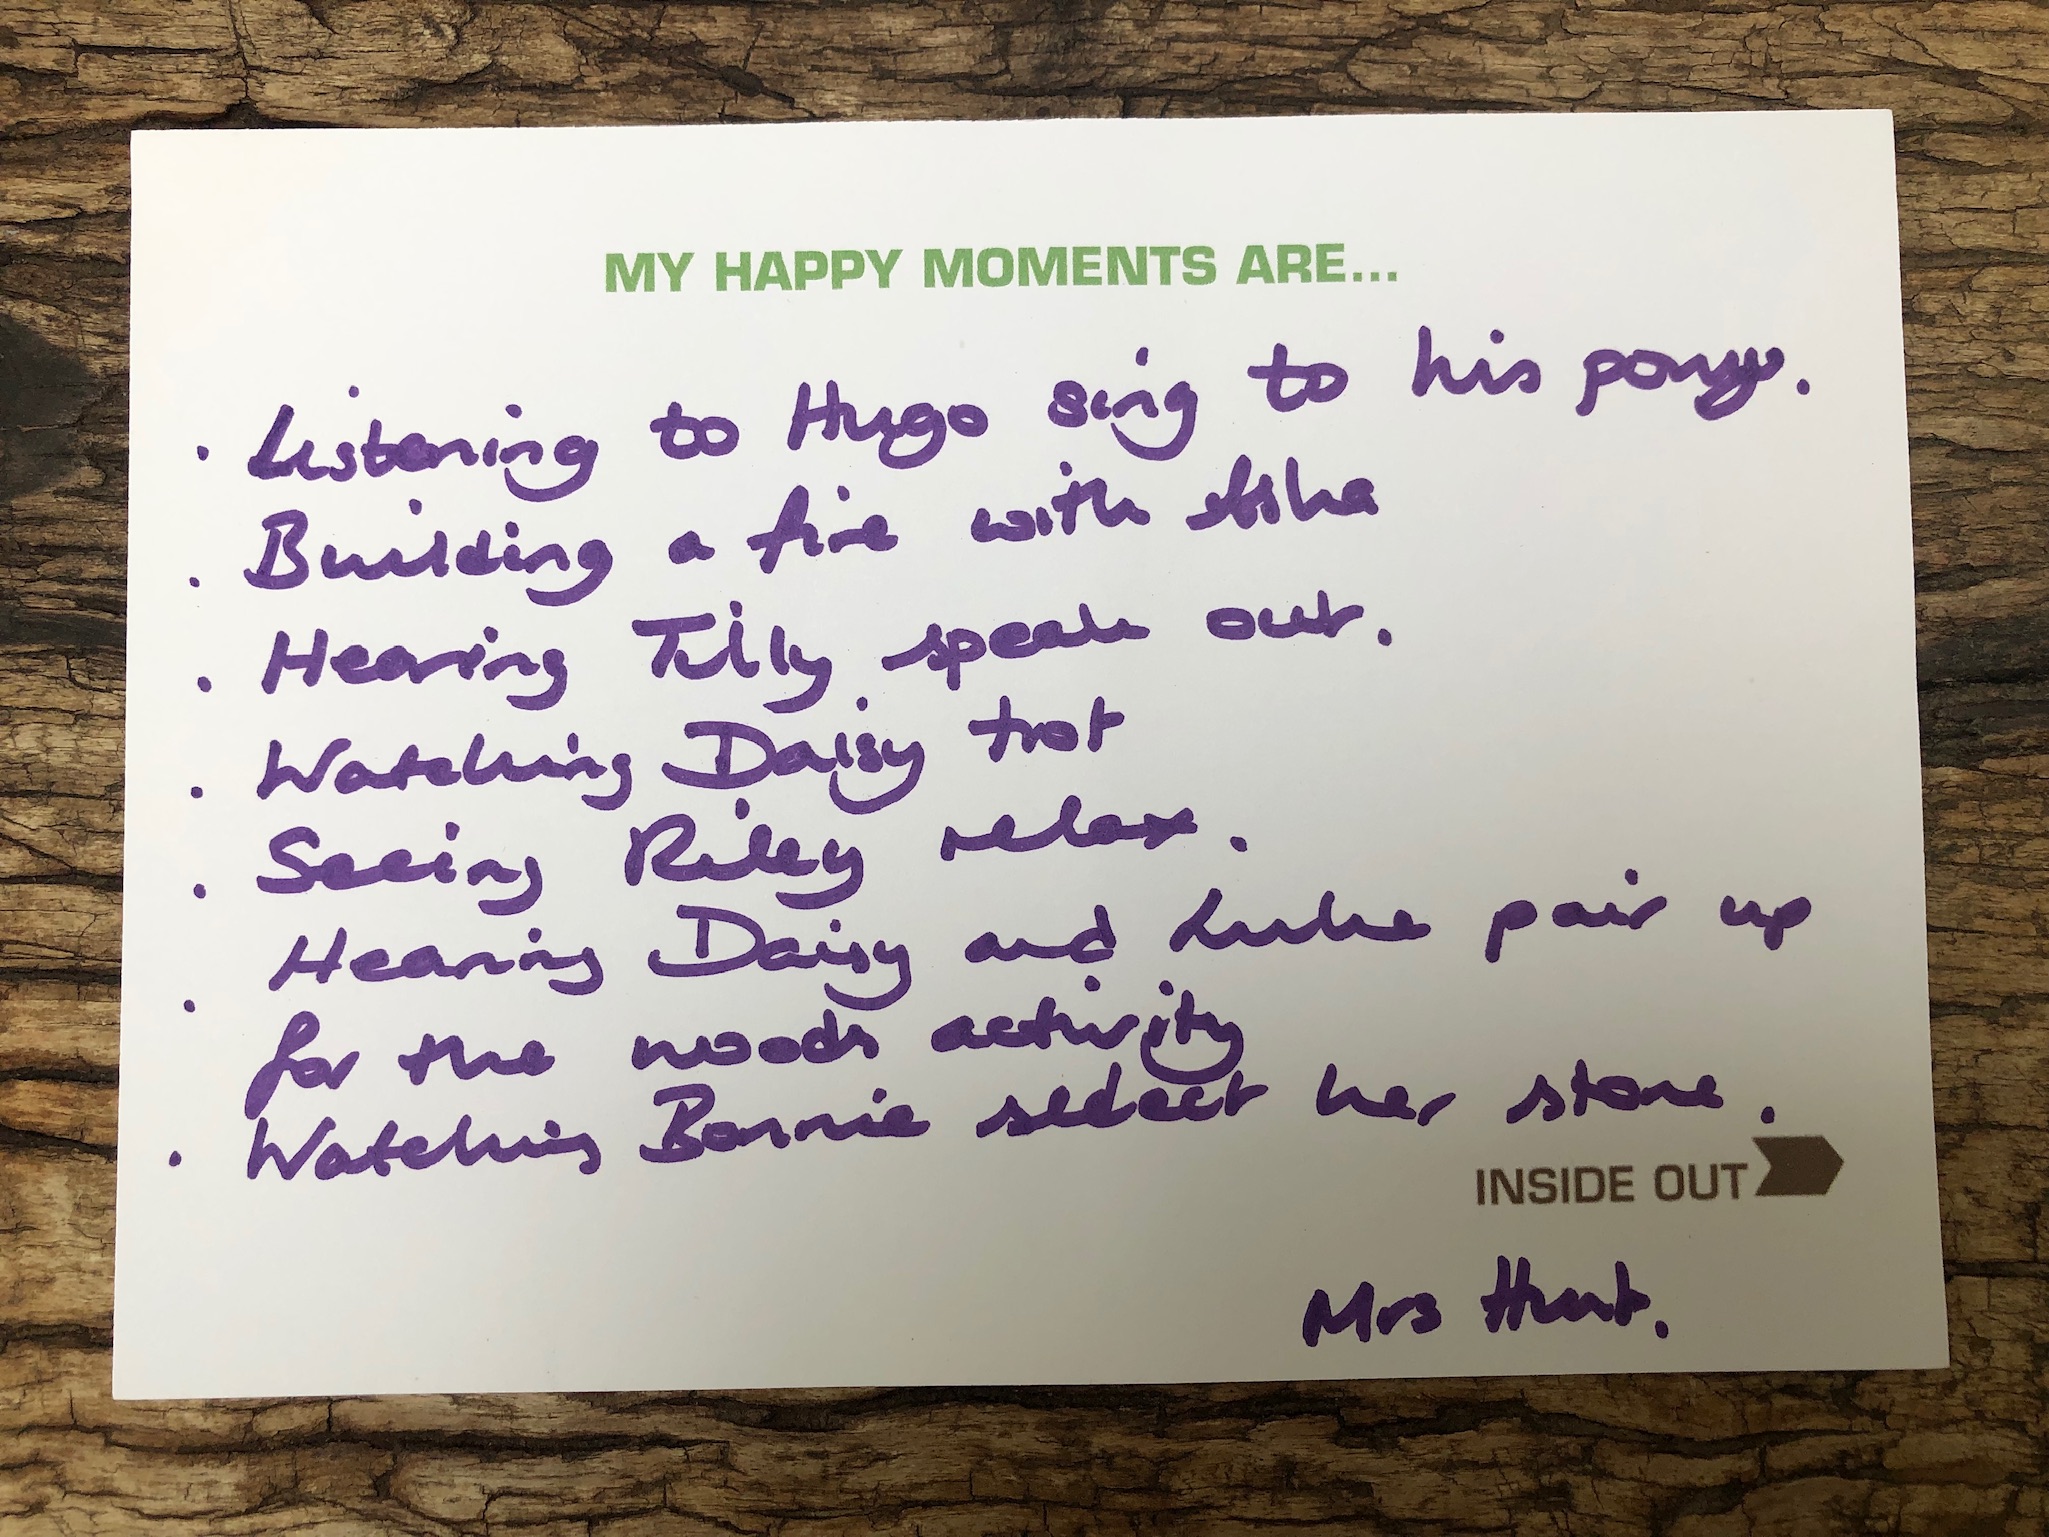 MY HAPPY MOMENTS ARE...
· Listening to Hugo sing to his pony.
· Building a fire with Asha
· Hearing Tilly speak out.
· Watching Daisy trot
· Seeing Riley relax.
· Hearing Daisy and Luke pair up
for the woods activity
· Watching Bonnie select her stone.
INSIDE OUT
Mrs Hunt.